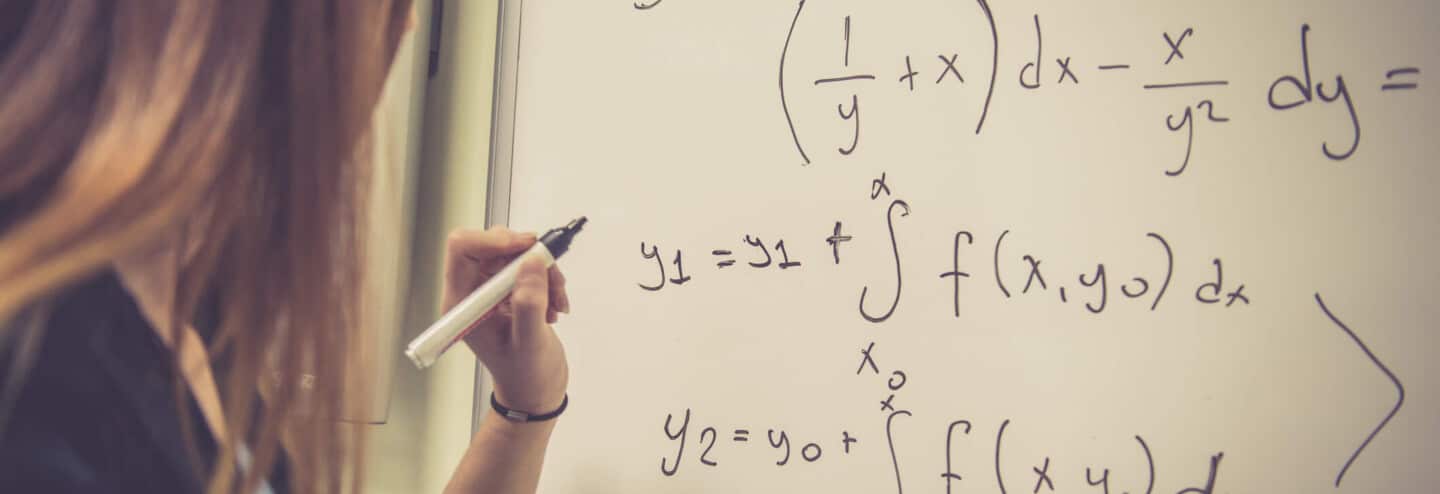 (1/y + x) dx - x/y² dy =
y1 = y1 + ∫_{x0}^{x} f(x, y0) dx
y2 = y0 + ∫^{x} f(x y ) d